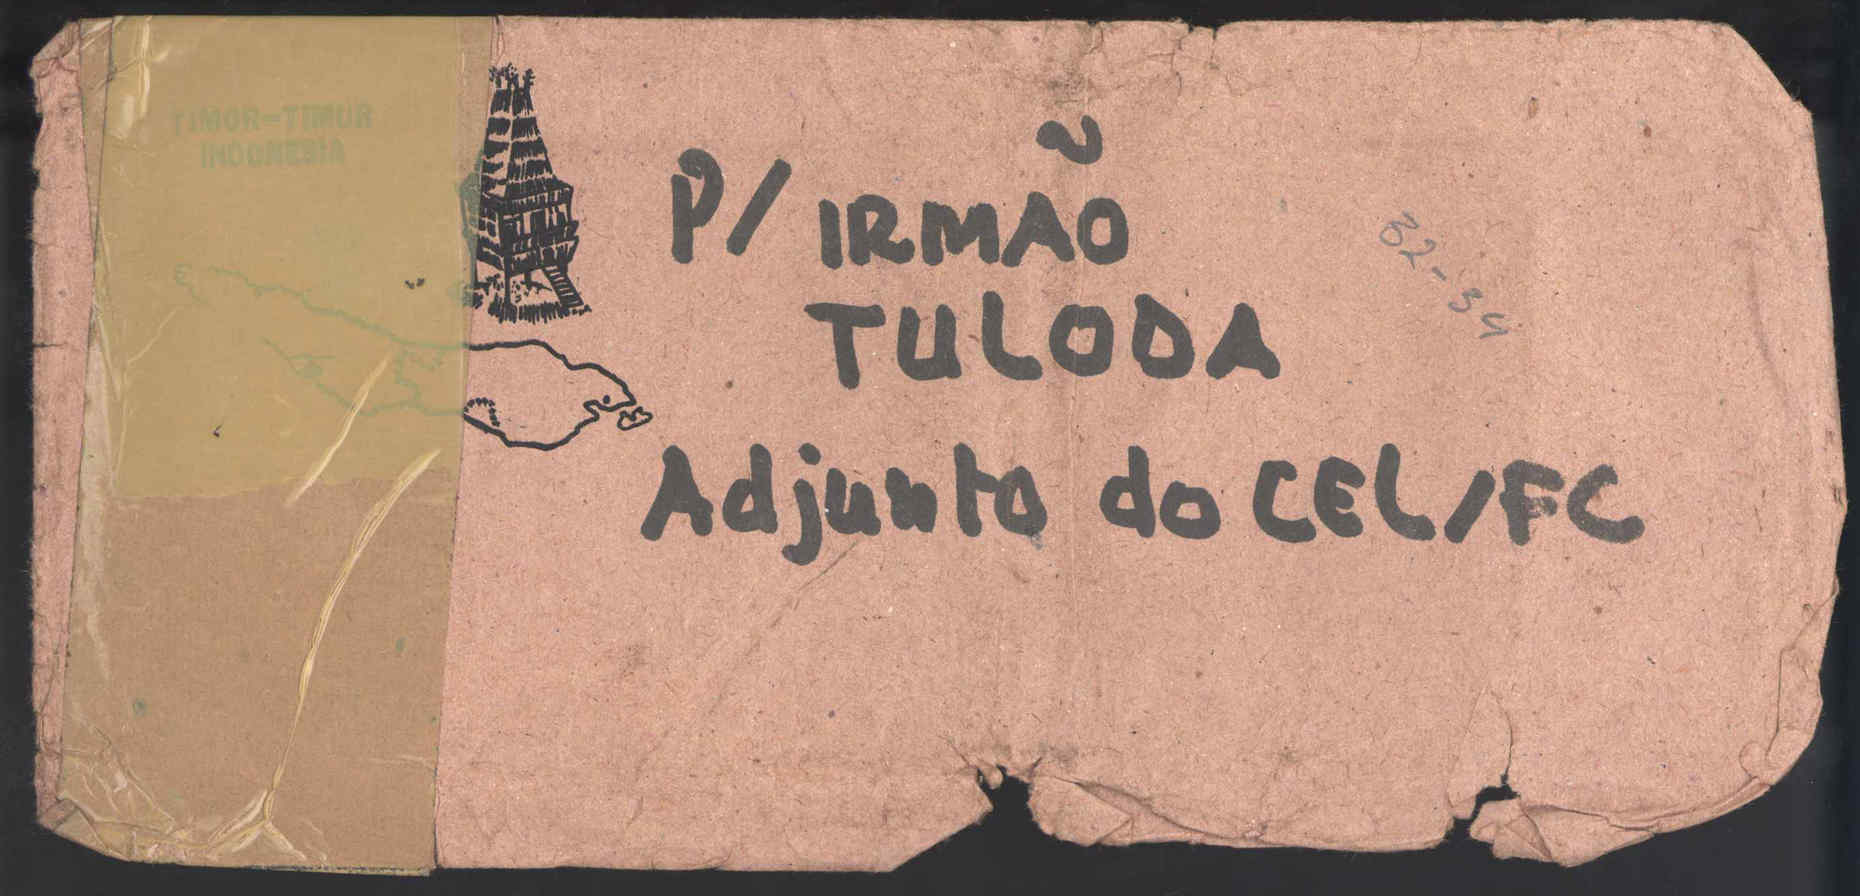 TIMOR-TIMUR
INDONESIA
P/ IRMÃO
TULODA
Adjunto do CEL/FC
32-34